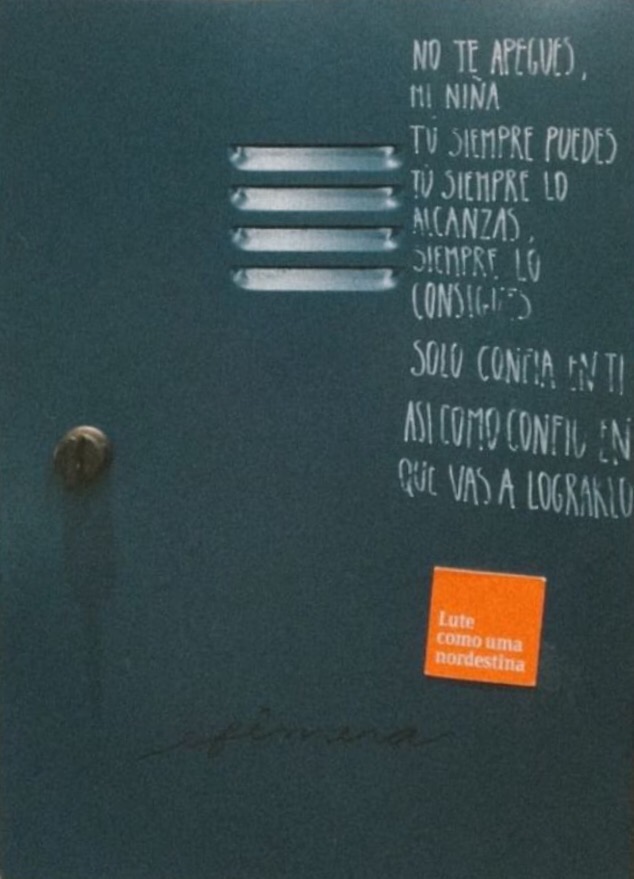 NO TE APEGUES,
MI NIÑA
TÚ SIEMPRE PUEDES
TÚ SIEMPRE LO
ALCANZAS,
SIEMPRE LO
CONSIGUES
SOLO CONFIA EN TI
ASI COMO CONFIO EN
QUE VAS A LOGRARLO
Lute
como uma
nordestina